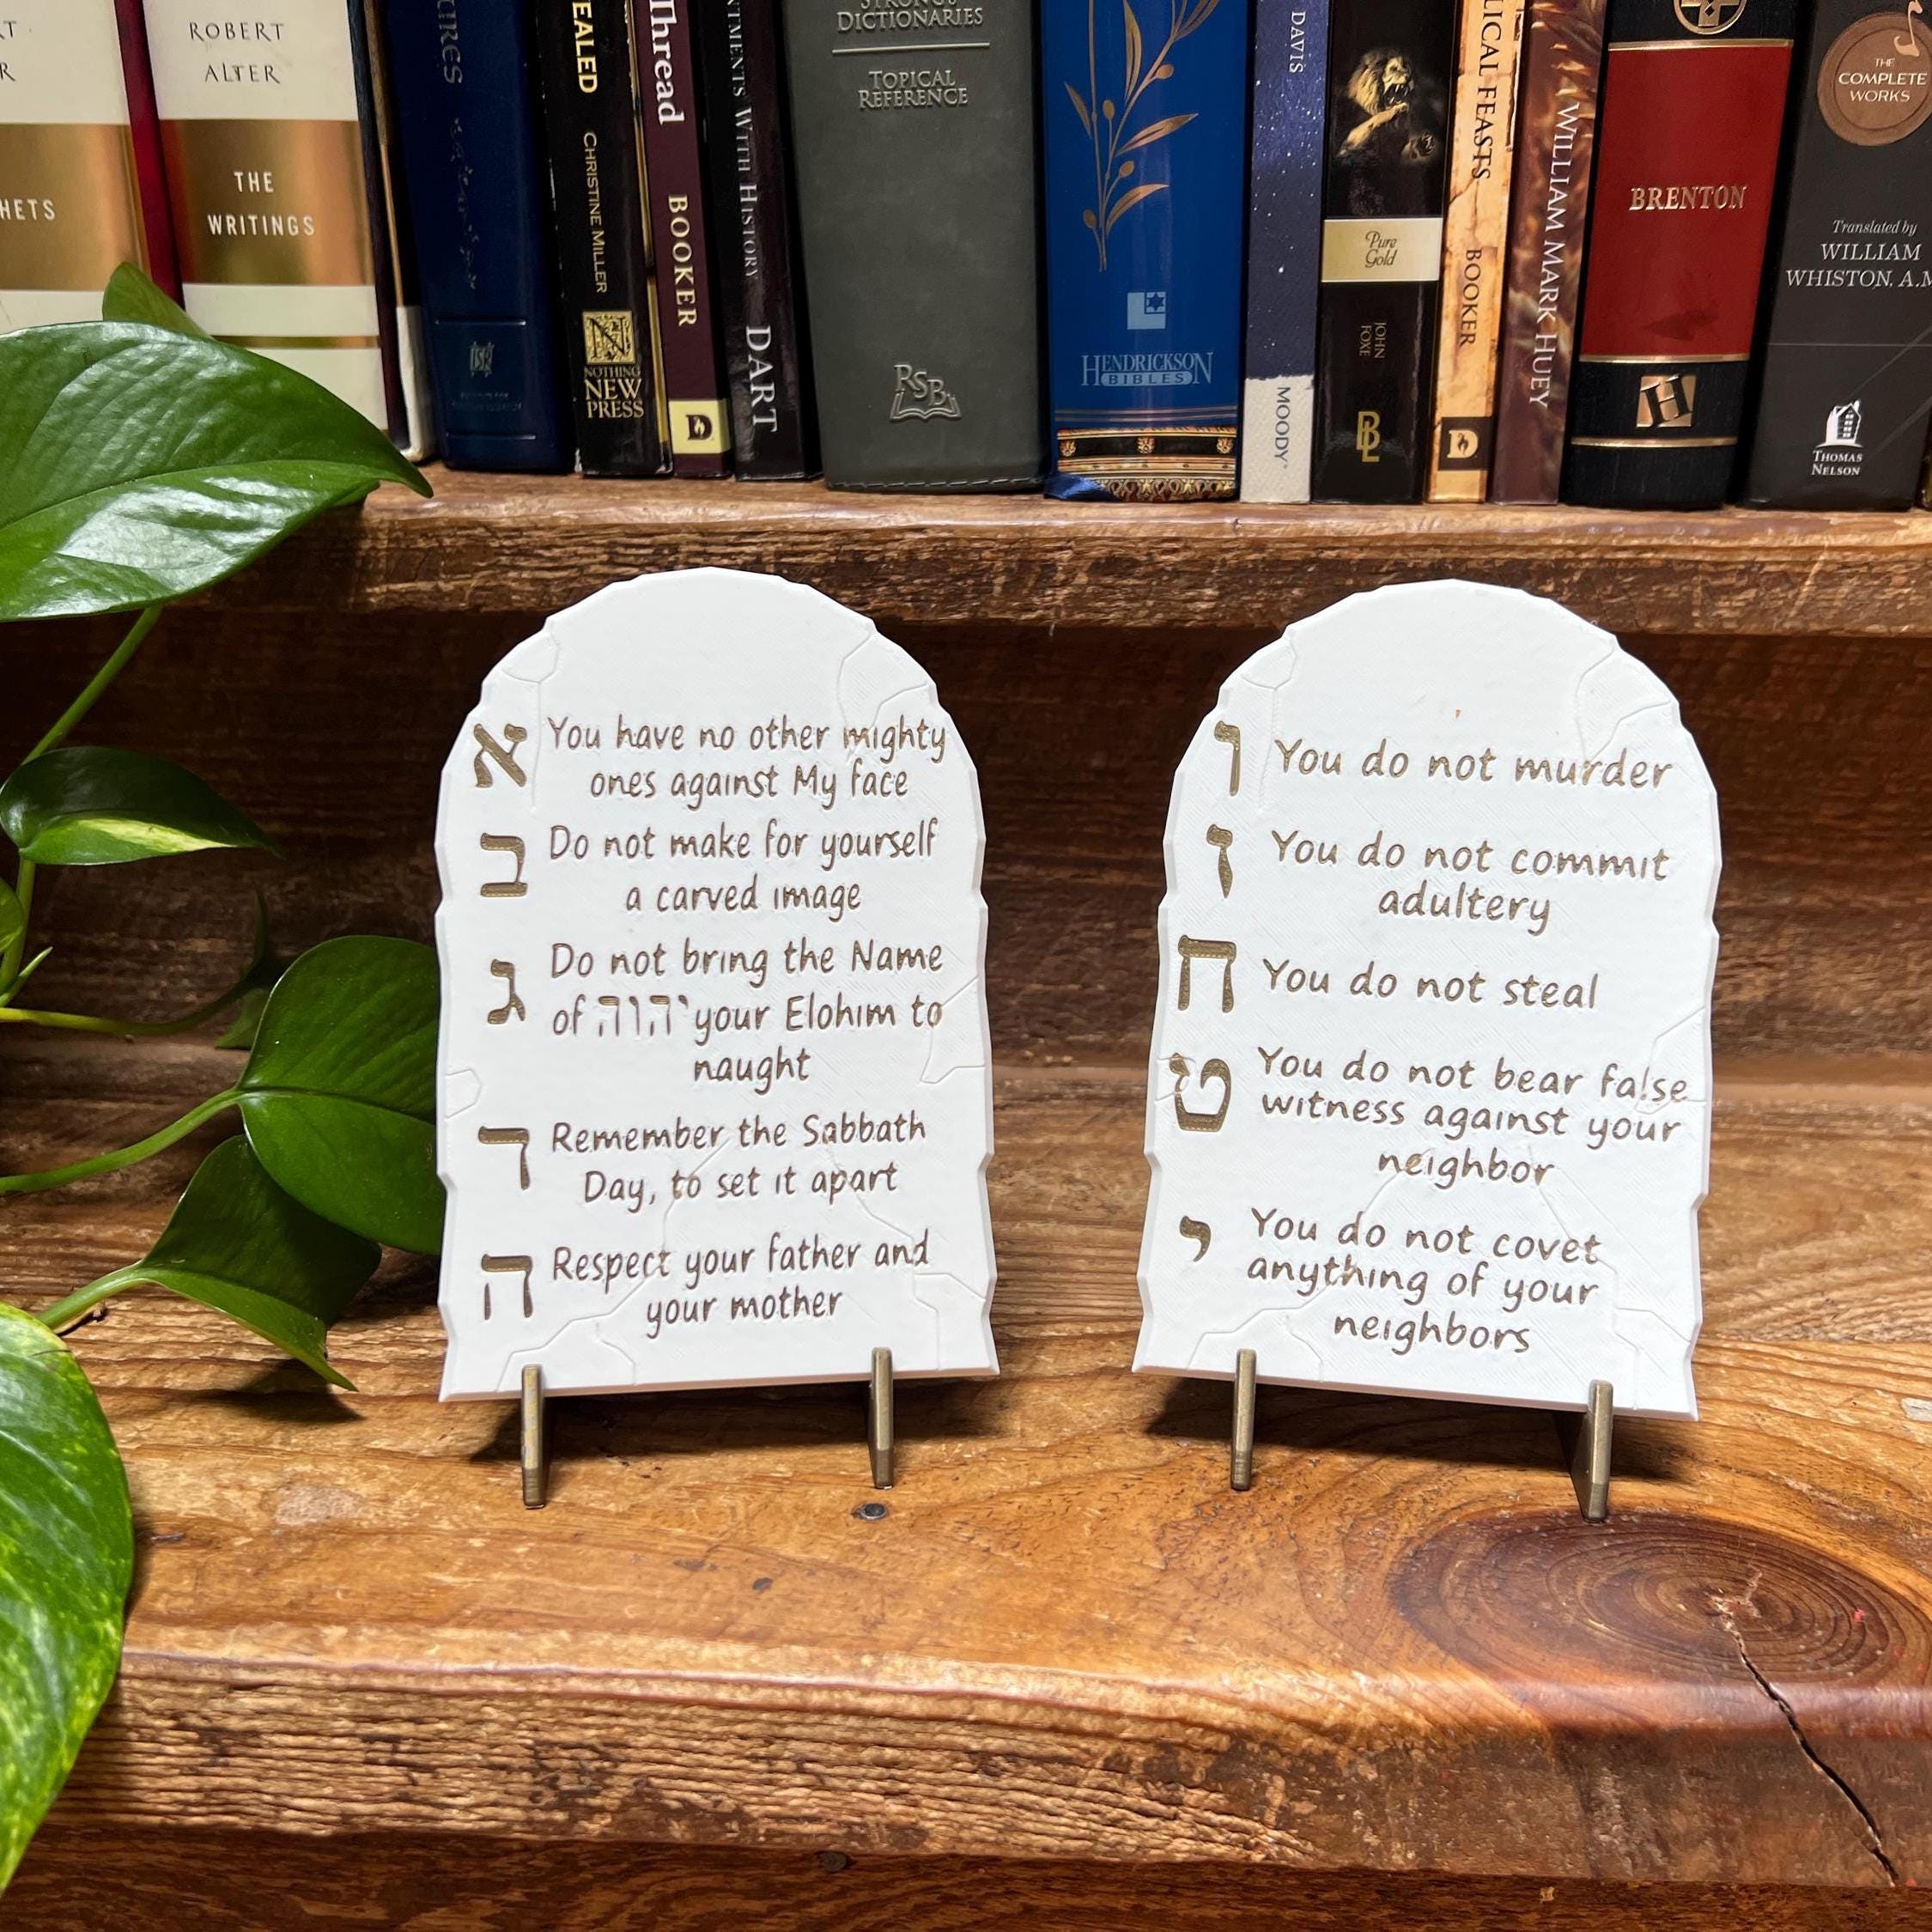 ROBERT
ALTER
THE
WRITINGS
CHRISTINE MILLER
NOTHING
NEW
PRESS
BOOKER
D
WITH HISTORY
DART
DICTIONARIES
TOPICAL
REFERENCE
RSB
HENDRICKSON
BIBLES
DAVIS
MOODY
Pure
Gold
JOHN
FOXE
FEASTS
BOOKER
D
WILLIAM MARK HUEY
BRENTON
H
THE
COMPLETE
WORKS
Translated by
WILLIAM
WHISTON, A.M
THOMAS
NELSON
א You have no other mighty
ones against My face
ב Do not make for yourself
a carved image
ג Do not bring the Name
of יהוה your Elohim to
naught
ד Remember the Sabbath
Day, to set it apart
ה Respect your father and
your mother
ו You do not murder
ז You do not commit
adultery
ח You do not steal
ט You do not bear false
witness against your
neighbor
י You do not covet
anything of your
neighbors